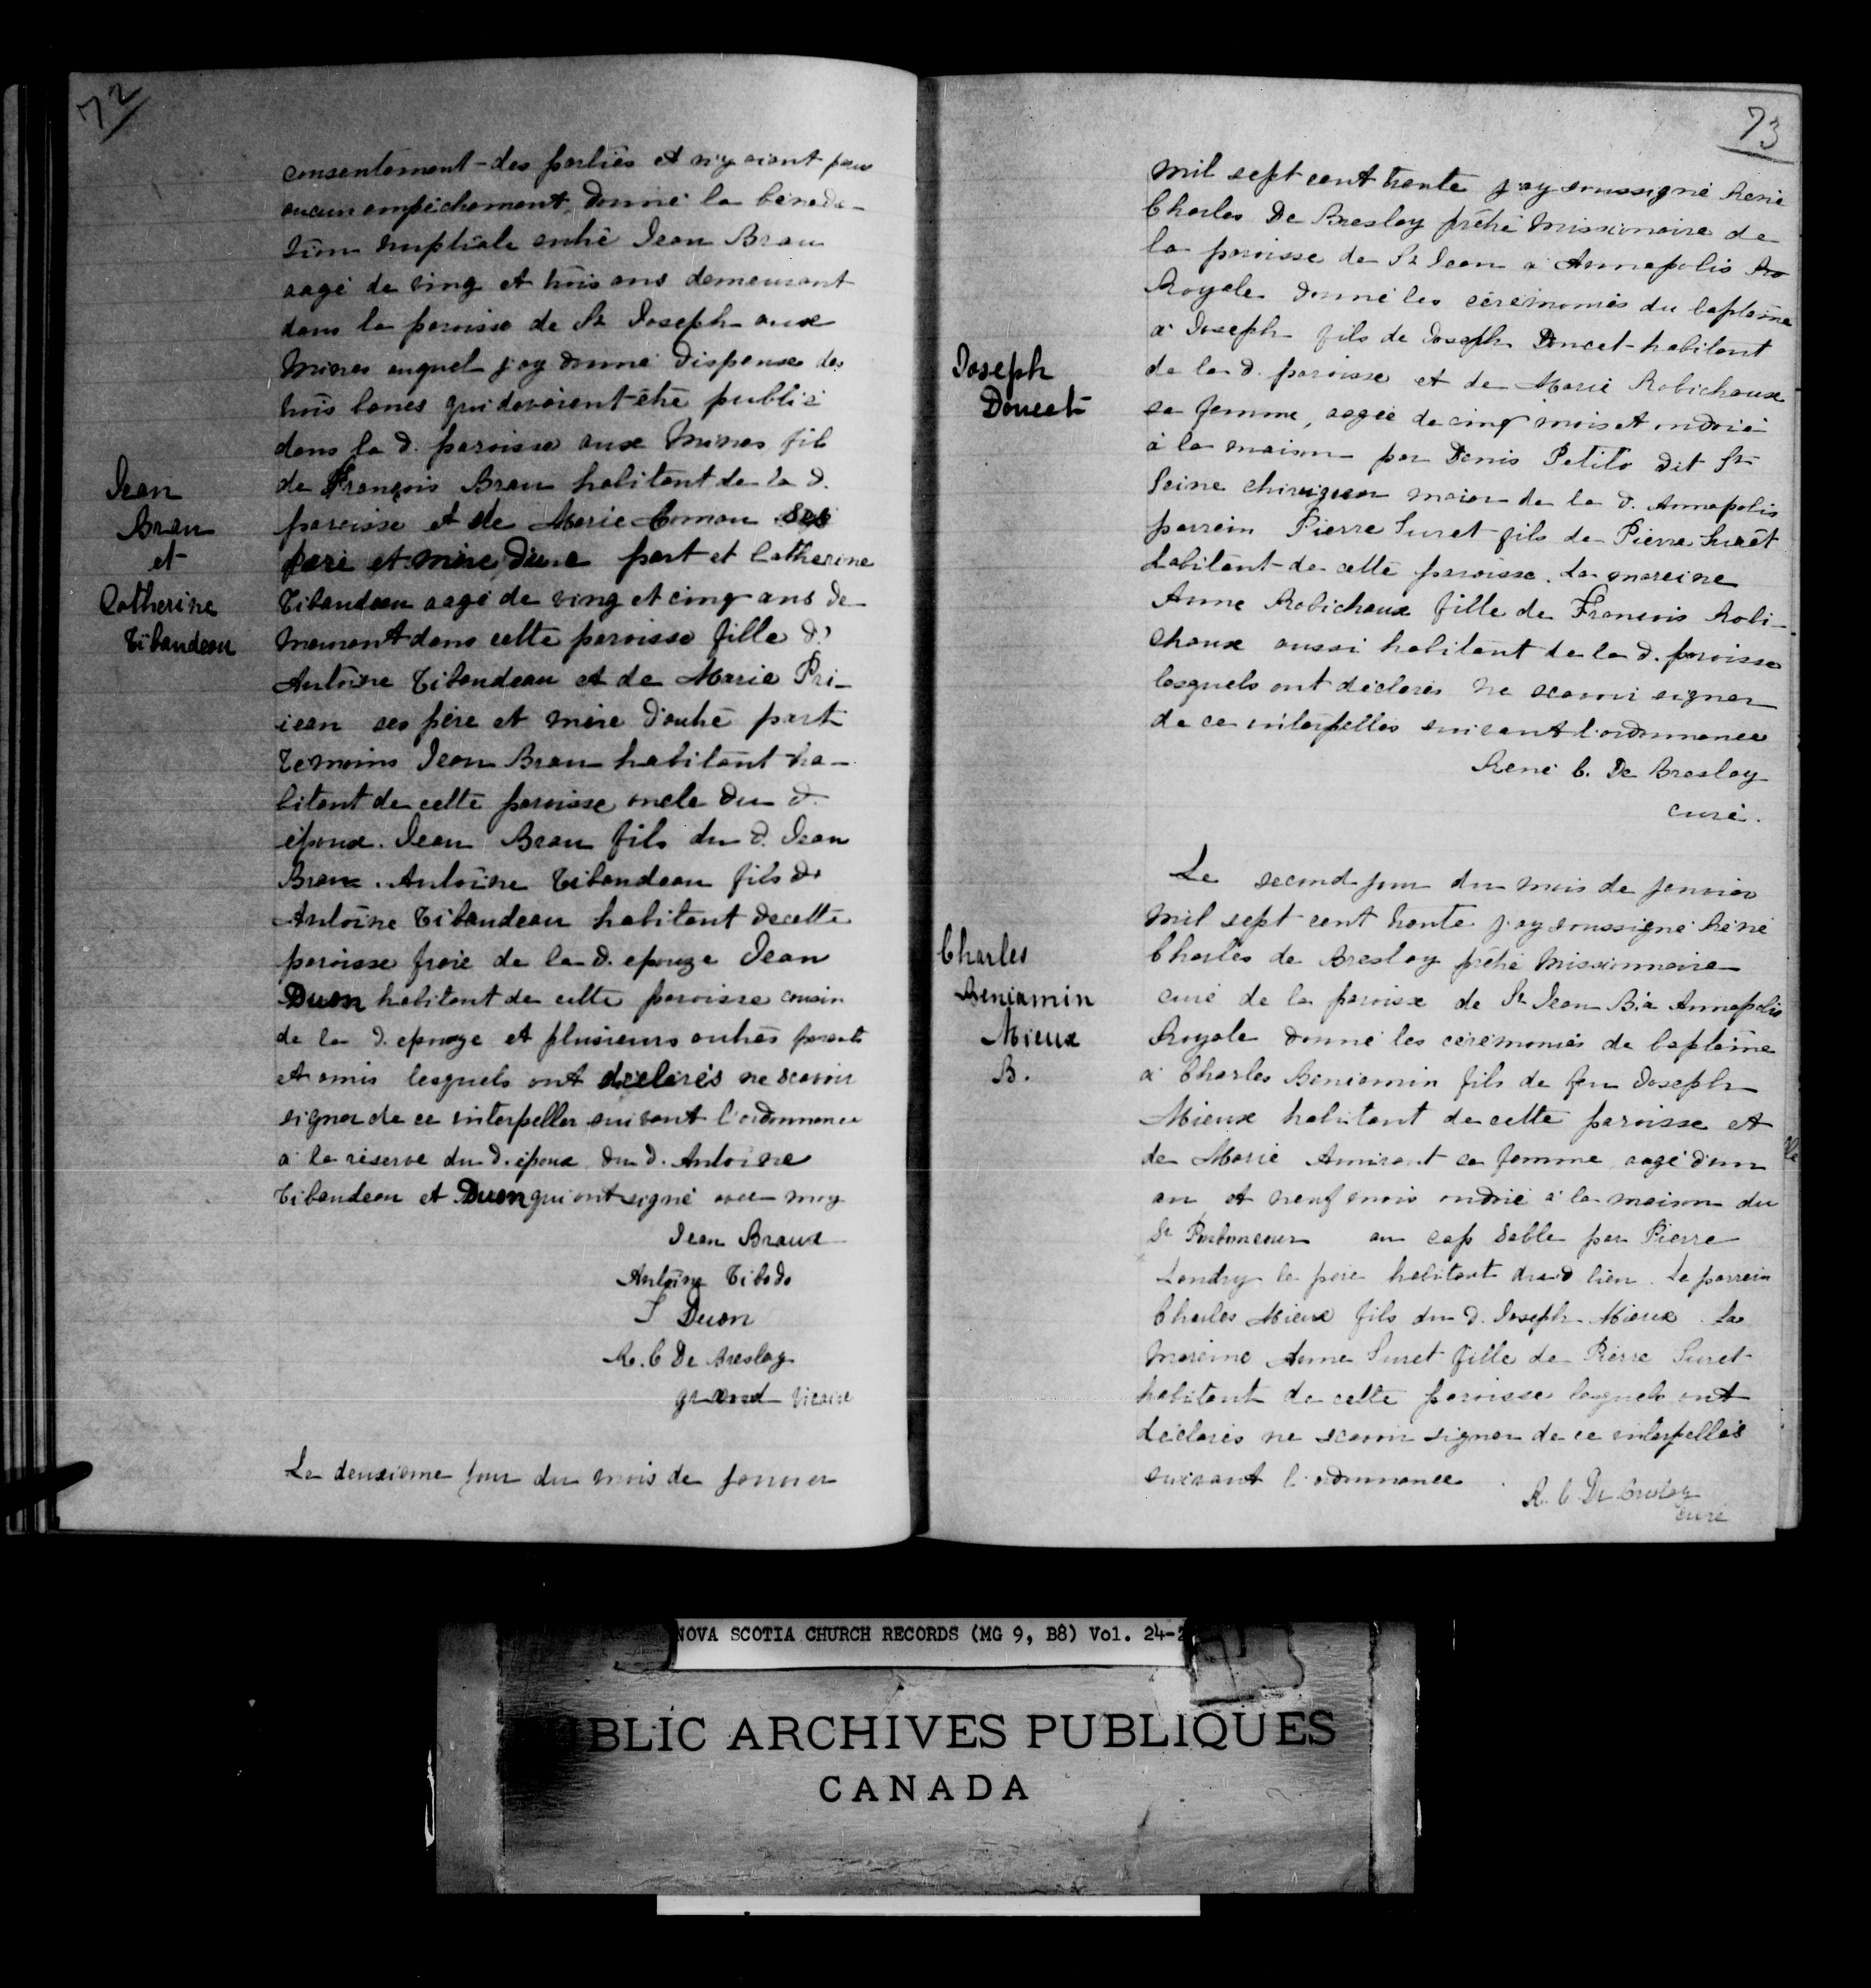 72
consentement des parties et n'y aiant pas
aucun empêchement, donné la bénédic-
tion nuptiale entre Jean Brau
aagé de ving et trois ans demeurant
dans la paroisse de St Joseph aux
Mines auquel j'ay donné dispense des
trois bancs qui devoient être publié
dans la d. paroisse aux Mines fils
de François Brau habitant de la d.
paroisse et de Marie Comau ses
père et mère d'une part et Catherine
Tibaudeau aagé de ving et cinq ans de
meurant dans cette paroisse fille d'
Antoine Tibaudeau et de Marie Pri-
iean ses père et mère d'autre part
Temoins Jean Brau habitant ha-
bitant de cette paroisse oncle du d.
époux. Jean Brau fils du d. Jean
Braux. Antoine Tibaudeau fils de
Antoine Tibaudeau habitant de cette
paroisse frere de la d. epouze Jean
Duon habitant de cette paroisse cousin
de la d. epouze et plusieurs autres parents
et amis lesquels ont déclarés ne scavoir
signer de ce interpeller suivant l'ordonnance
à la réserve du d. époux du d. Antoine
Tibaudeau et Duon qui ont signé avec moy
Jean Braux
Antoine Tibodo
J Duon
R. C De Breslay
grand vicaire
Le deuxieme jour du mois de janvier
Jean
Brau
et
Catherine
Tibaudeau
73
mil sept cent trente j'ay soussigné René
Charles De Breslay prêtre missionnaire de
la paroisse de St Jean à Annapolis Ro
Royale donné les cérémonies du baptême
à Joseph fils de Joseph Doucet habitant
de la d. paroisse et de Marie Robichaux
sa femme, aagée de cinq mois et ondoié
à la maison par Denis Petito dit St
Seine chirugien maior de la d. Annapolis
parrein Pierre Suret fils de Pierre Surêt
habitant de cette paroisse. La mareine
Anne Robichaux fille de François Robi-
chaux aussi habitant de la d. paroisse
lesquels ont déclarés ne scavoir signer
de ce interpellés suivant l'ordonnance
René C. De Breslay
curé.
Joseph
Doucet
Le second jour du mois de janvier
mil sept cent trente j'ay soussigné René
Charles de Breslay prêtre missionnaire
curé de la paroisse de St Jean B. à Annapolis
Royale donné les cérémonies de baptême
à Charles Beniamin fils de feu Joseph
Mieux habitant de cette paroisse et
de Marie Amirant sa femme aagé d'un
an et neuf mois ondoié à la maison du
Sr au cap Sable par Pierre
Landry le père habitant du d lieu. Le parrein
Charles Mieux fils du d. Joseph Mieux. La
mareine Anne Suret fille de Pierre Suret
habitant de cette paroisse lesquels ont
déclarés ne scavoir signer de ce interpellés
suivant l'ordonnance.
R. C. De Breslay
curé
Charles
Beniamin
Mieux
B.
NOVA SCOTIA CHURCH RECORDS (MG 9, B8) Vol. 24-2
BLIC ARCHIVES PUBLIQUES
CANADA